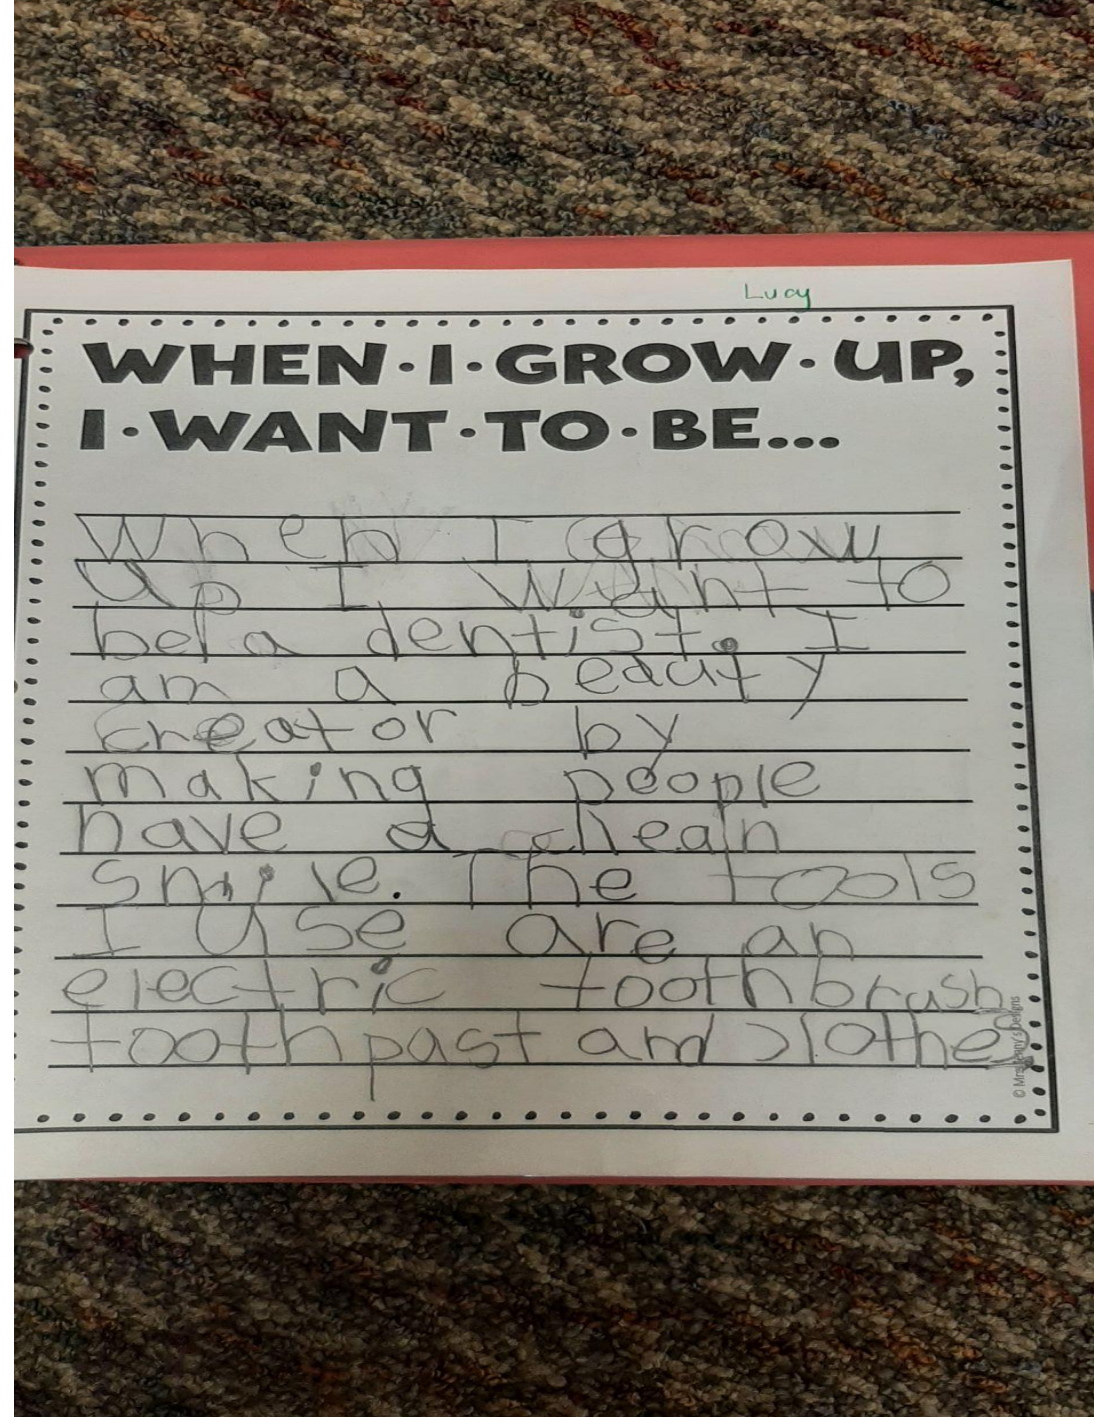 Lucy
WHEN·I·GROW·UP,
I·WANT·TO·BE...
When I grow
up I want to
be a dentist. I
am a beauty
creator by
making people
have a clean
smile. The tools
I use are an
electric toothbrush
toothpast and clothes
© Mrs. Jenny's Designs